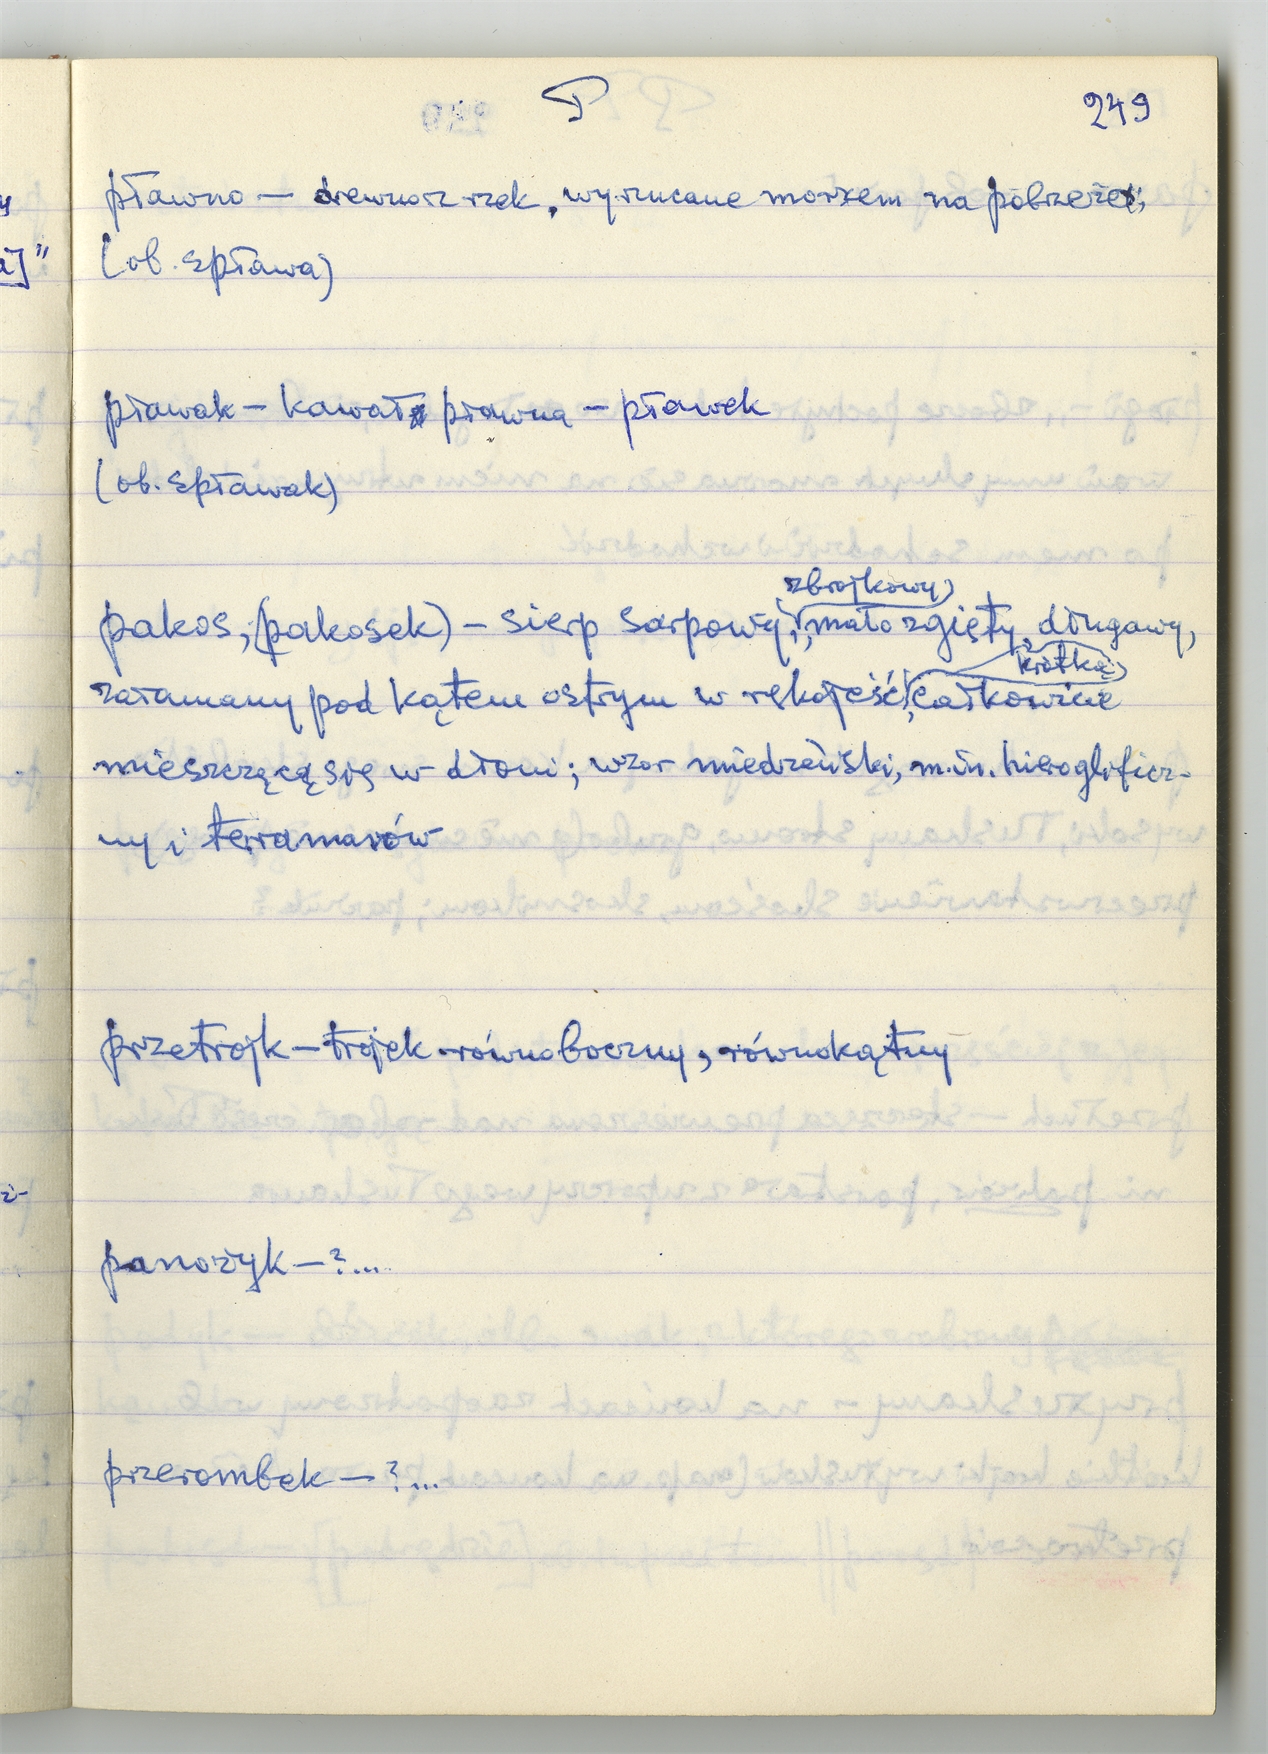 P
249
pławno — drewno z rzek, wyrzucane morzem na pobrzeże;
(ob. spława)
pławak — kawał pławna — pławek
(ob. spławak)
pakos, (pakosek) — sierp sarpowy, zbrojkowy, mało zgięty, długawy,
załamany pod kątem ostrym w rękojeść krótką, całkowicie
mieszczącą się w dłoni; wzor miedzeński, m.in. hieroglificz-
ny i terramarów
przetrojk — trojek równoboczny, równokątny
panożyk — ?...
przerombek — ?...